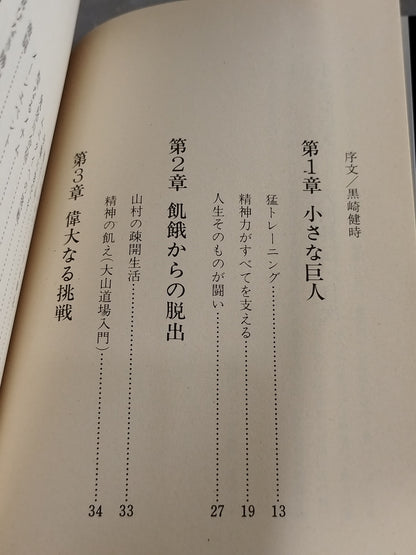 序文／黒崎健時
第1章 小さな巨人
猛トレーニング……………………13
精神力がすべてを支える……………………19
人生そのものが闘い……………………27
第2章 飢餓からの脱出
山村の疎開生活……………………33
精神の飢え(大山道場入門)……………………34
第3章 偉大なる挑戦